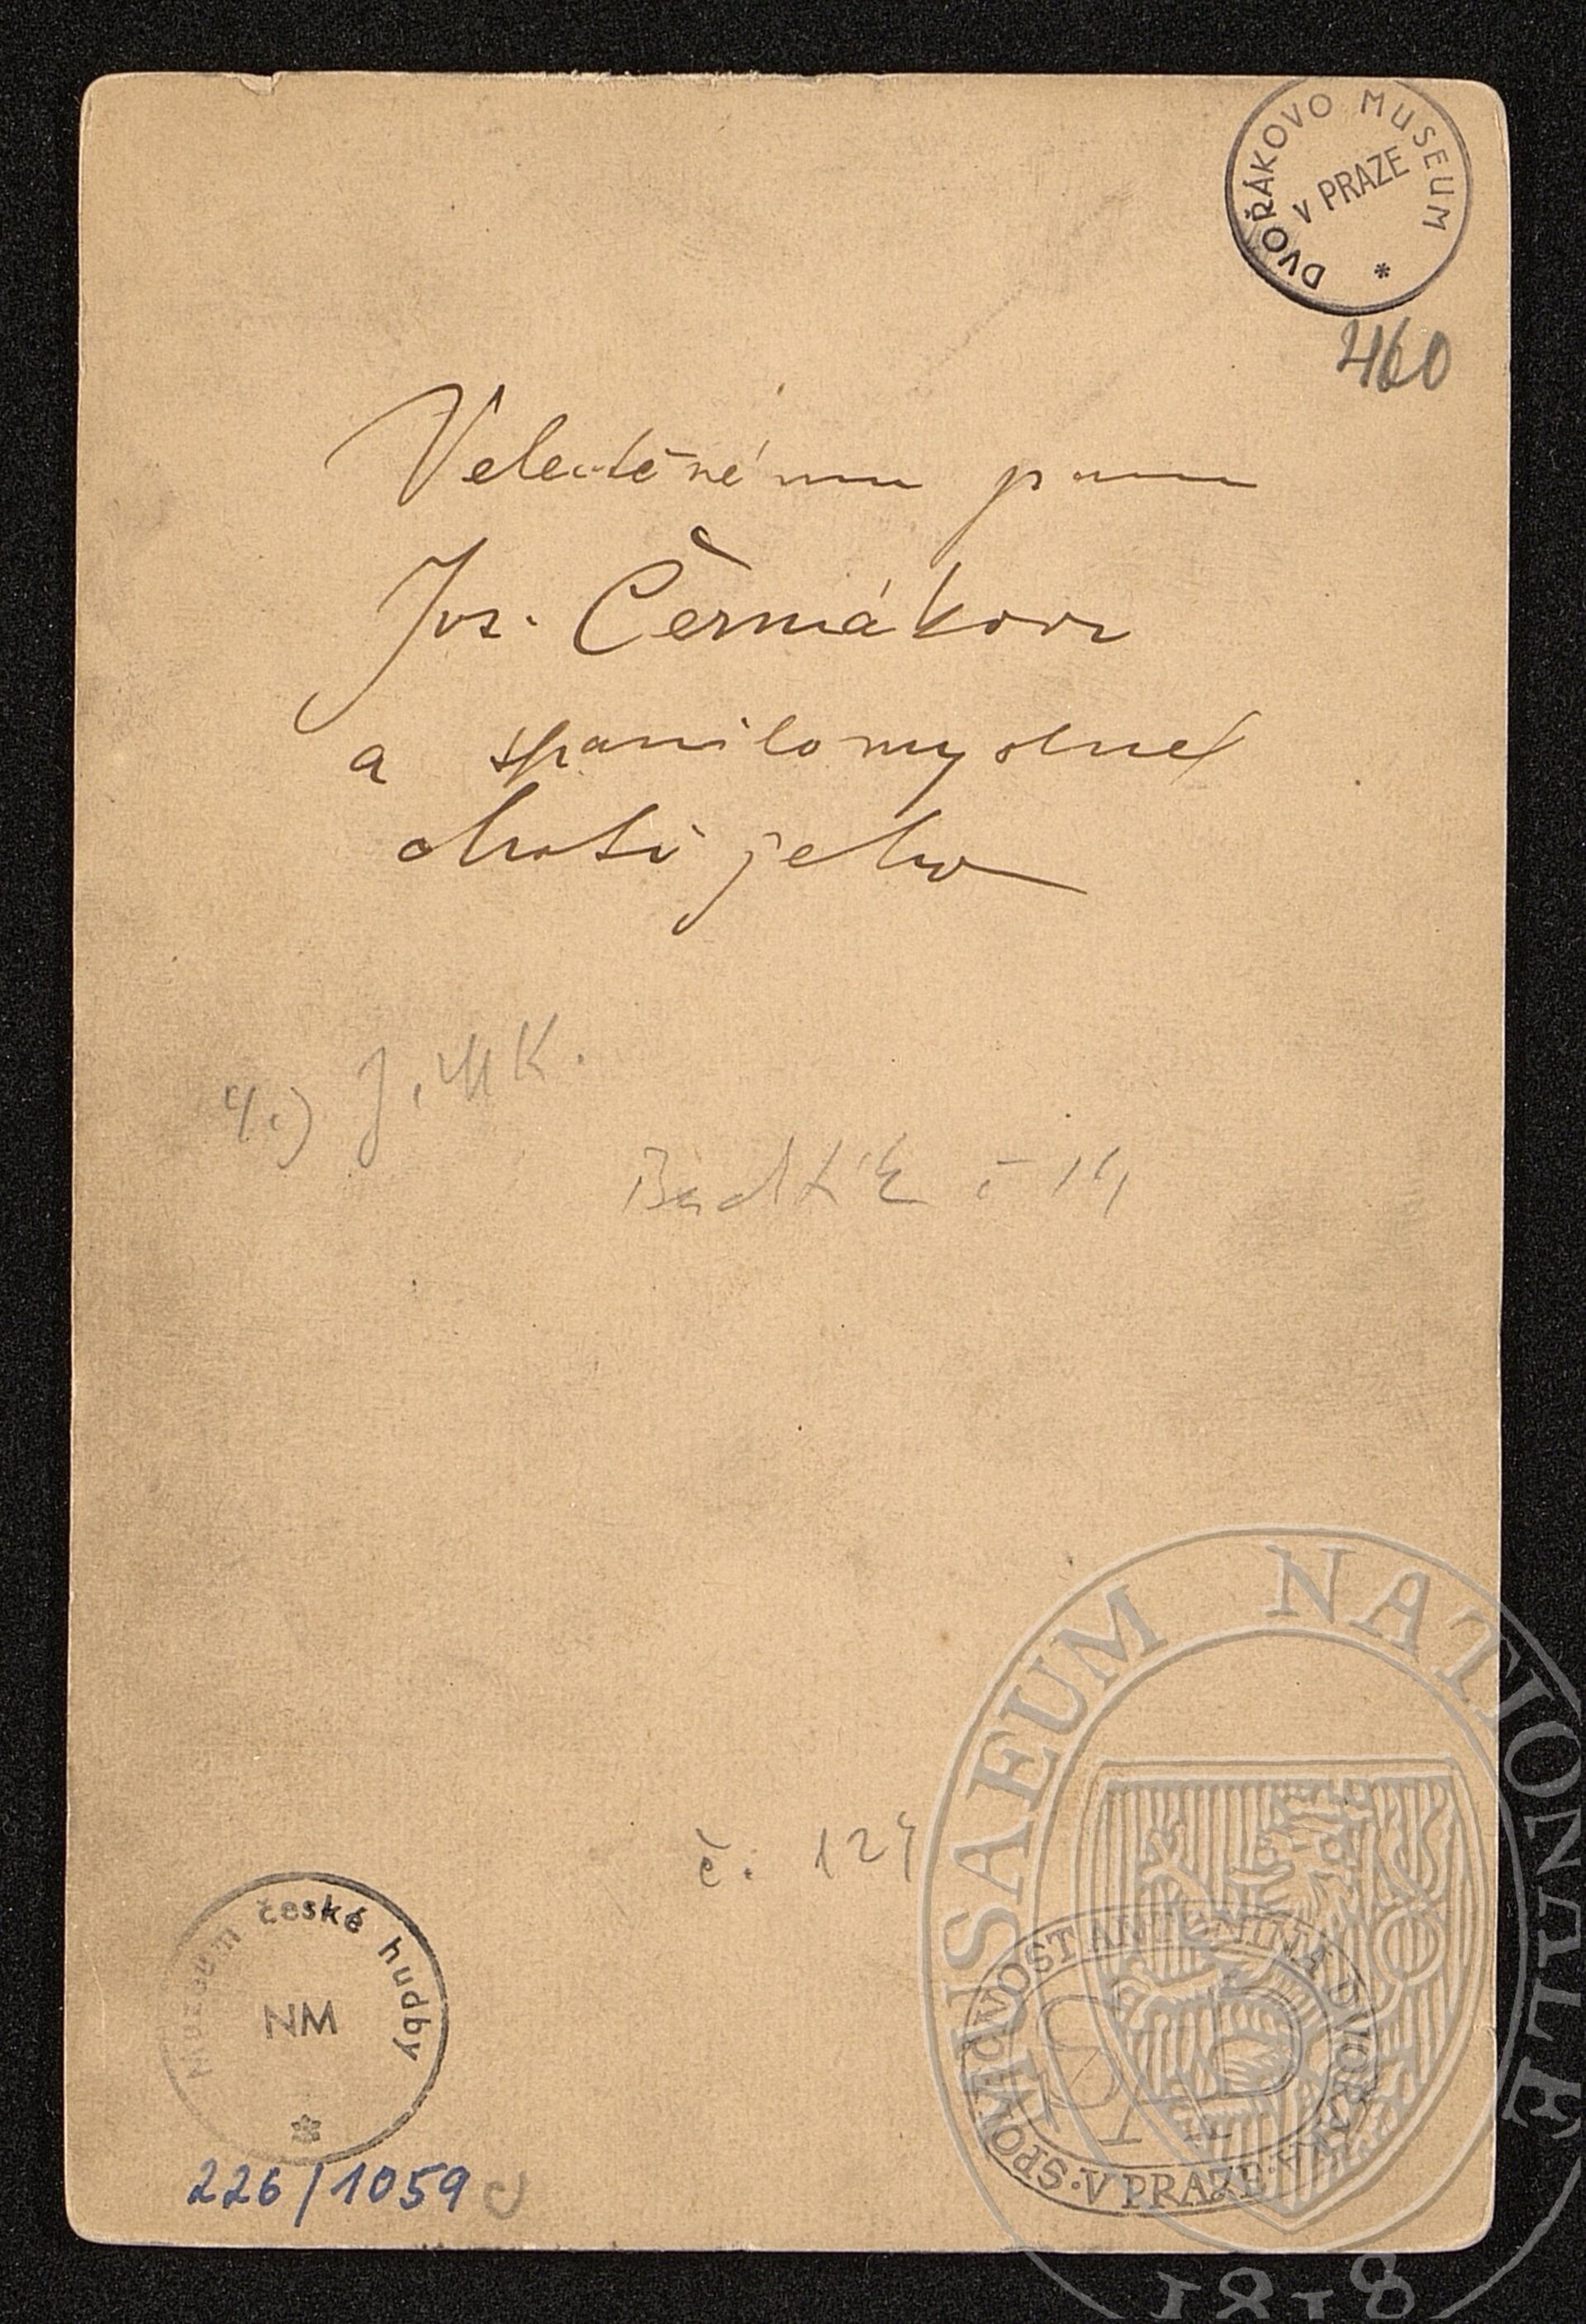 DVOŘÁKOVO MUSEUM
V PRAZE
460
Velectěnému panu
Jos. Černiákovi
a spanilomyslné
choti jeho
4.) J. MK.
č 14
č. 124
Muzeum české hudby
NM
226/1059
SPOLEČNOST ANTONÍNA DVOŘÁKA · V PRAZE ·
MUSAEUM NATIONALE
1818